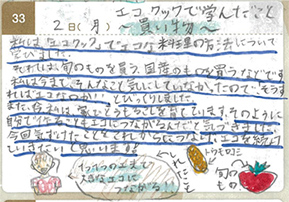 33
エコクックで学んだこと
2日(月) 〜買い物〜
私は「エコクック」でエコな料理の方法について
学びました。
それは、旬のものを買う、国産のものを買うなどです。
私は今までそんなに気にしていなかったので、そう
すればエコなのか！とびっくりしました。
また、今私は家でとうもろこしを育てています。そのように
自分で作ることもエコにつながるんだと気づきました。
今回気づけたことをこれからにつなげ、エコを続けて
いきたいと思います！
1つ1つの工夫で
大きなエコに
つながる！！
トウモロコシ
旬の
もの